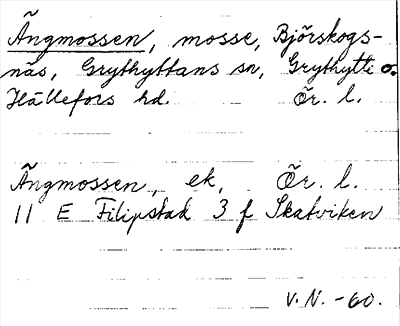 Ängmossen, mosse, Björskogs-
näs, Grythyttans sn, Grythytte o.
Hällefors hd. Ör. l.
Ängmossen, ek, Ör. l.
11 E Filipstad 3 f Skatviken
V.N. -60.